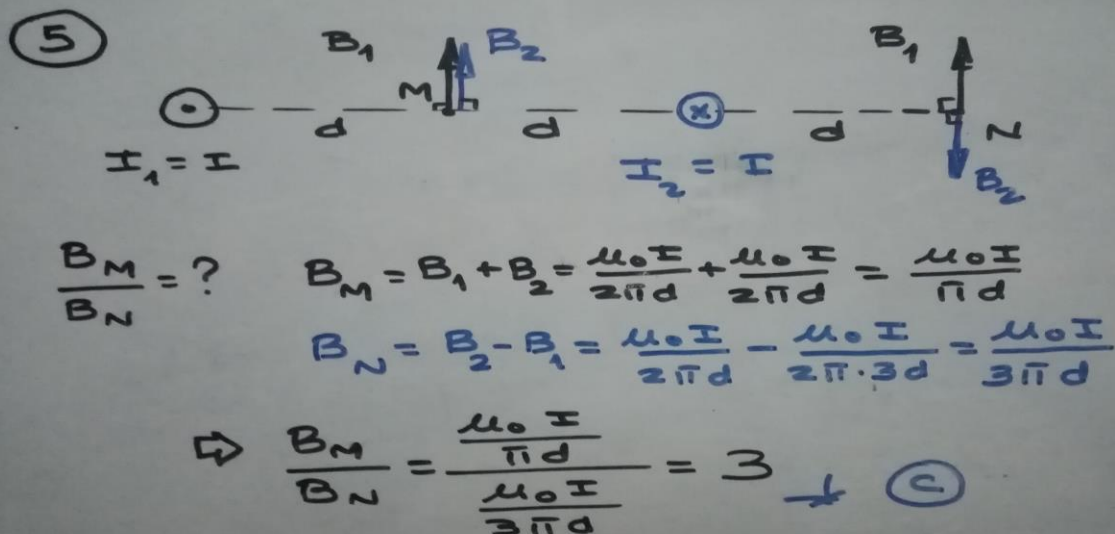 5
B₁ B₂ B₁
M
d d d N
I₁ = I I₂ = I B₂
B_M/B_N = ? B_M = B₁ + B₂ = μ₀I/2πd + μ₀I/2πd = μ₀I/πd
B_N = B₂ - B₁ = μ₀I/2πd - μ₀I/2π·3d = μ₀I/3πd
⇨ B_M/B_N = (μ₀I/πd)/(μ₀I/3πd) = 3 C